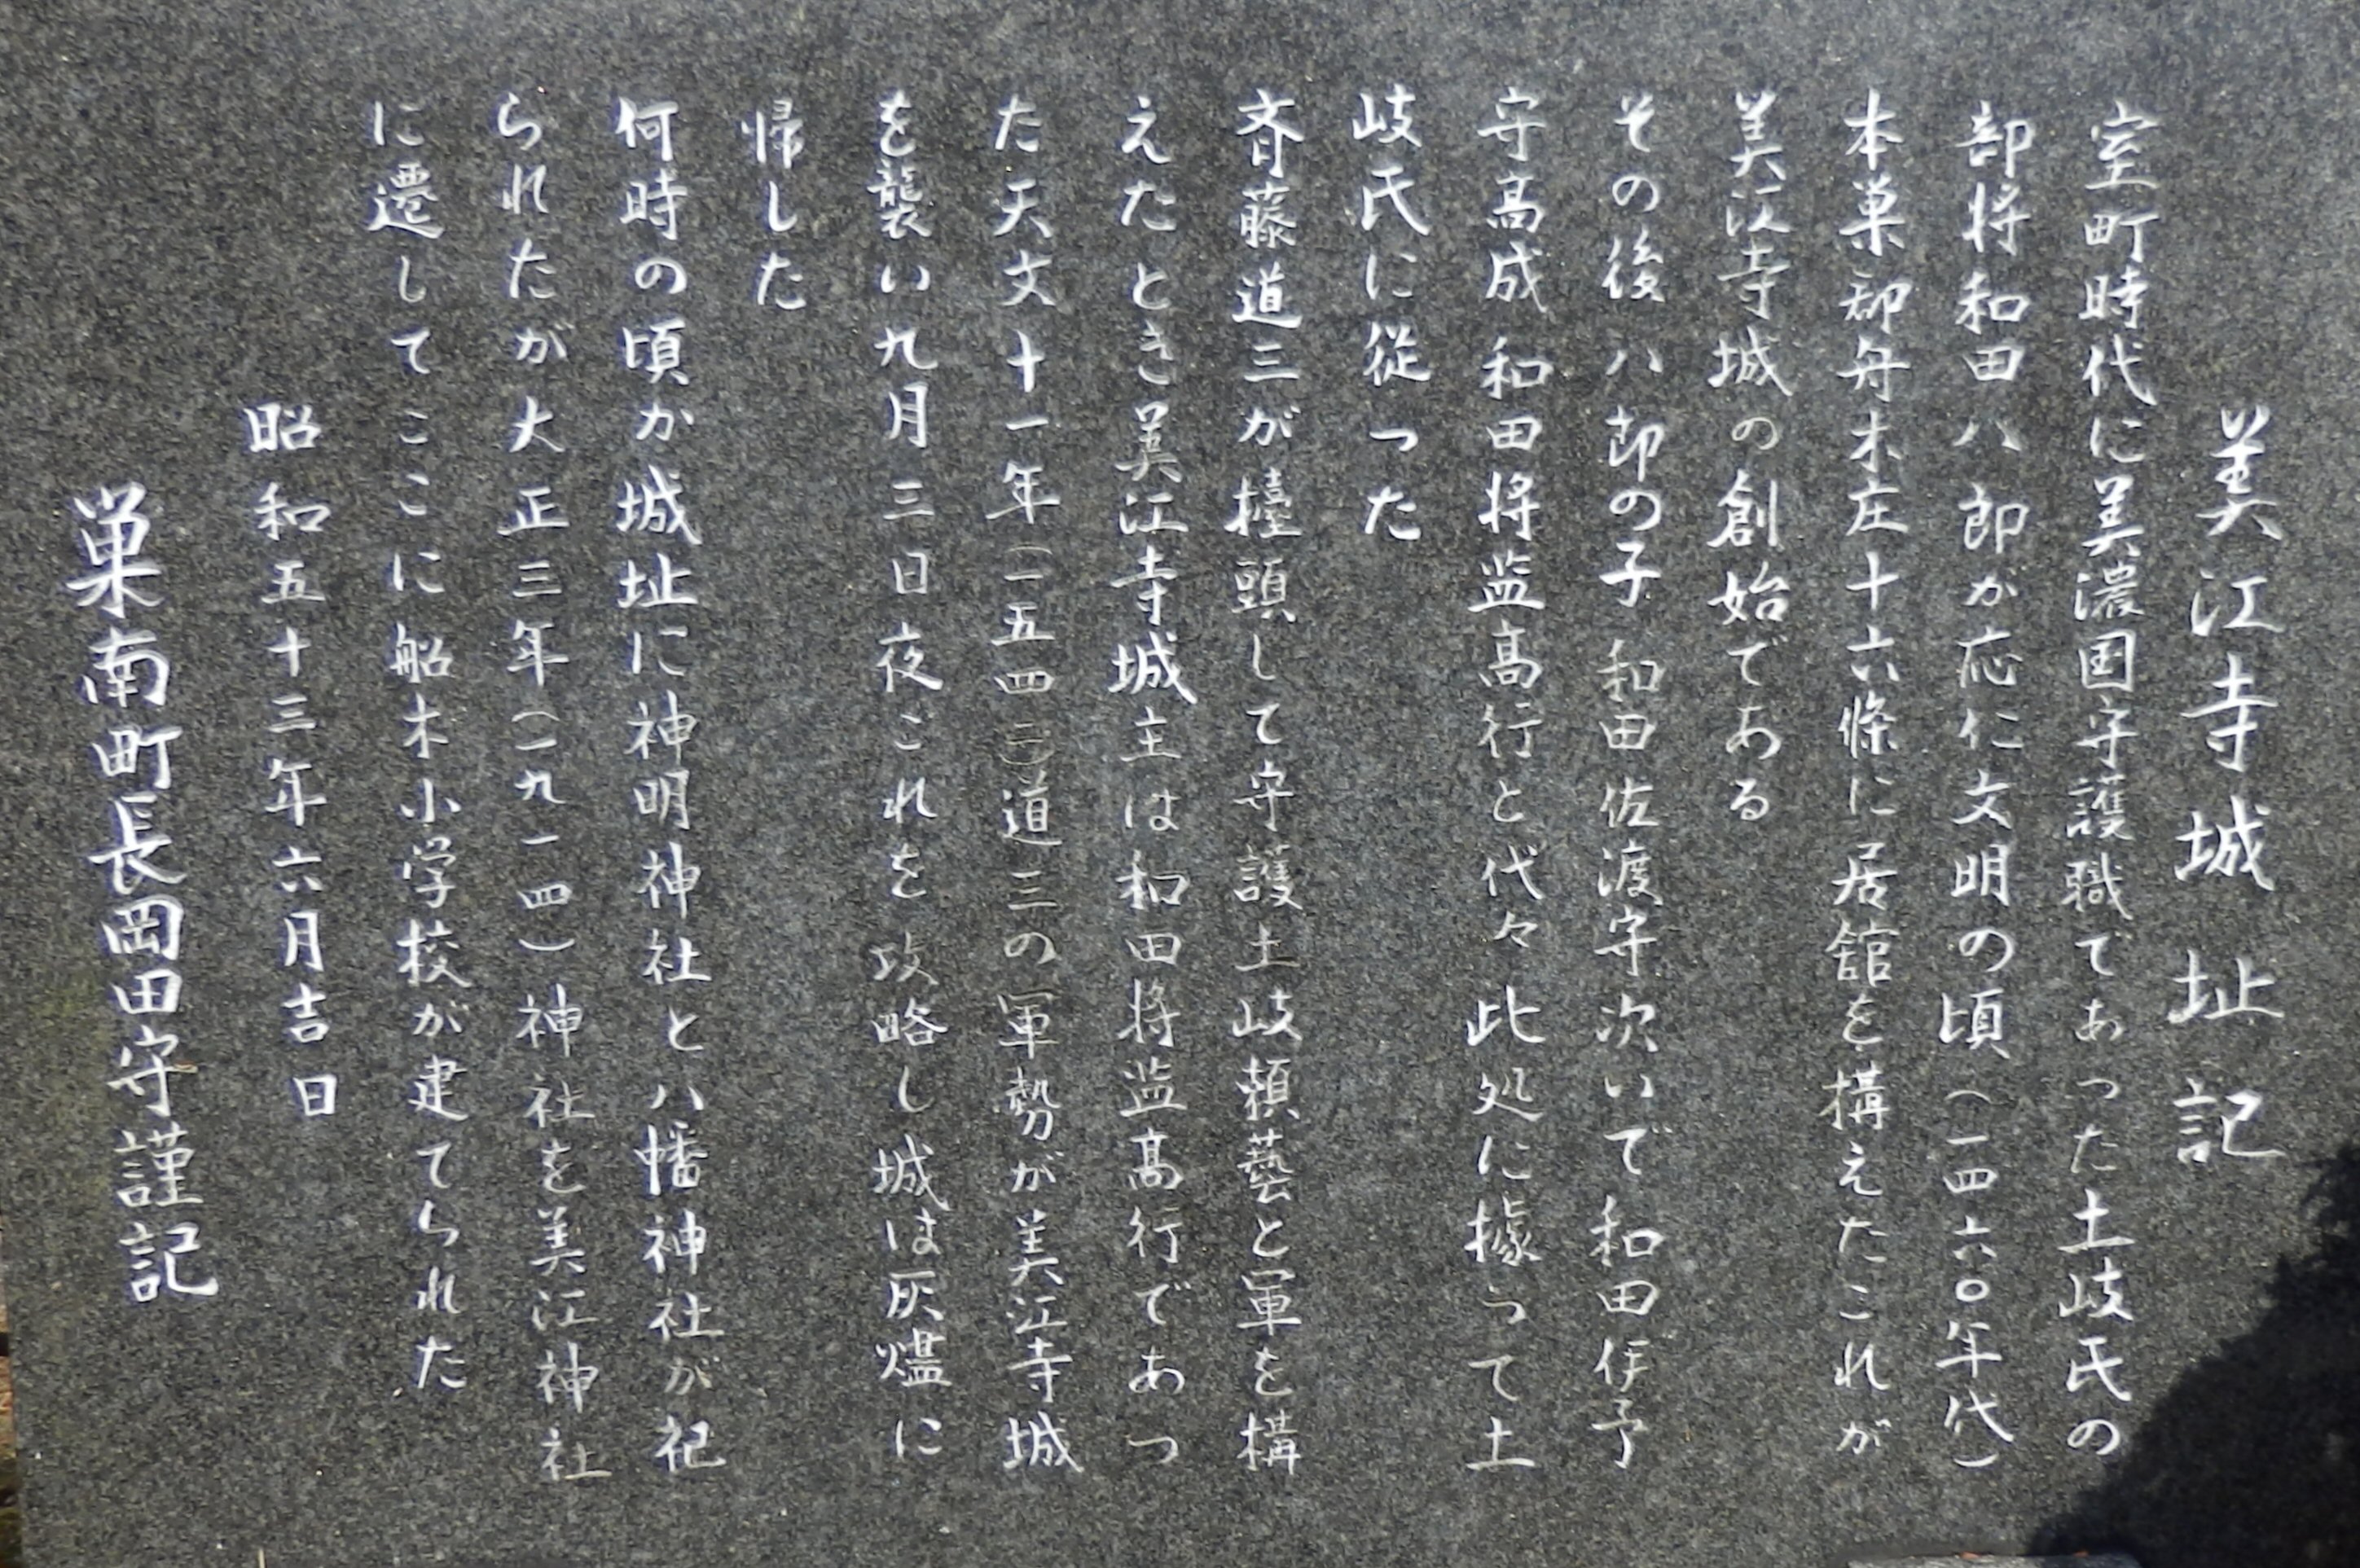 美江寺城址記
室町時代に美濃国守護職であった土岐氏の
部将和田八郎が応仁文明の頃(一四六〇年代)
本巣郡舟木庄十六條に居舘を構えたこれが
美江寺城の創始である
その後八郎の子和田佐渡守次いで和田伊予
守高成和田将监髙行と代々此処に據って土
岐氏に従った
斉藤道三が擡頭して守護土岐頼藝と軍を構
えたとき美江寺城主は和田将监髙行であっ
た天文十一年(一五四二)道三の軍勢が美江寺城
を襲い九月三日夜これを攻略し城は灰燼に
帰した
何時の頃か城址に神明神社と八幡神社が祀
られたが大正三年(一九一四)神社を美江神社
に遷してここに船木小学校が建てられた
昭和五十三年六月吉日
巣南町長岡田守謹記